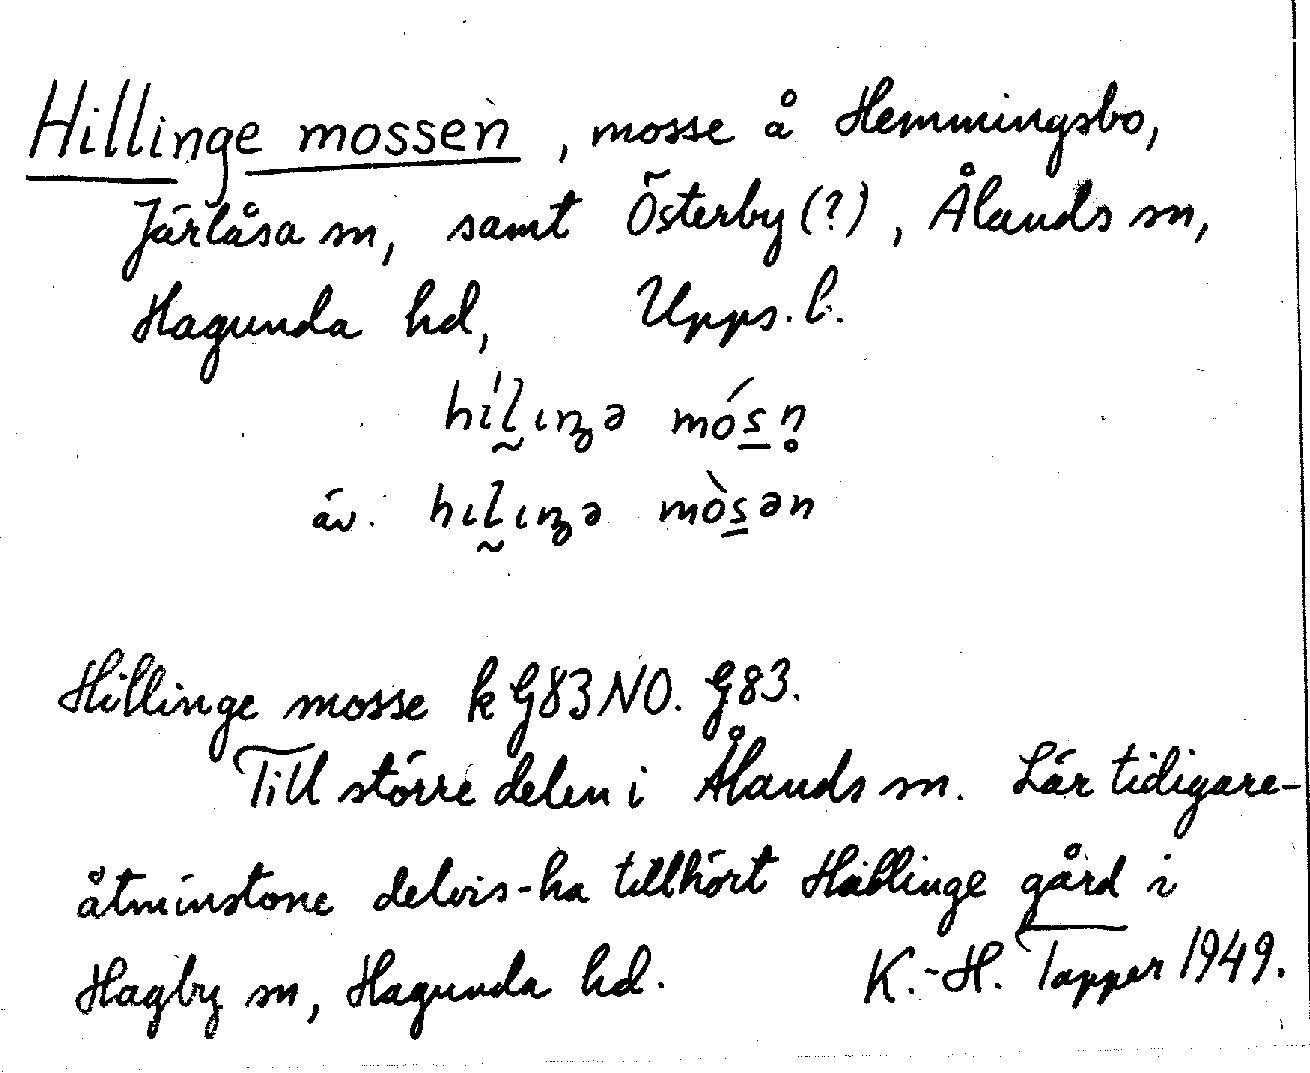 Hillinge mossen, mosse å Hemmingsbo,
Järlåsa sn, samt Österby (?), Ålands sn,
Hagunda hd, Upps. l.
hı́l̰ıŋə mós̲n̥
äv. hıl̰ıŋə mòs̲ən
Hillinge mosse k G83NO. G83.
Till större delen i Ålands sn. Lär tidigare-
åtminstone delvis-ha tillhört Hällinge gård i
Hagby sn, Hagunda hd. K.-H. Tapper 1949.